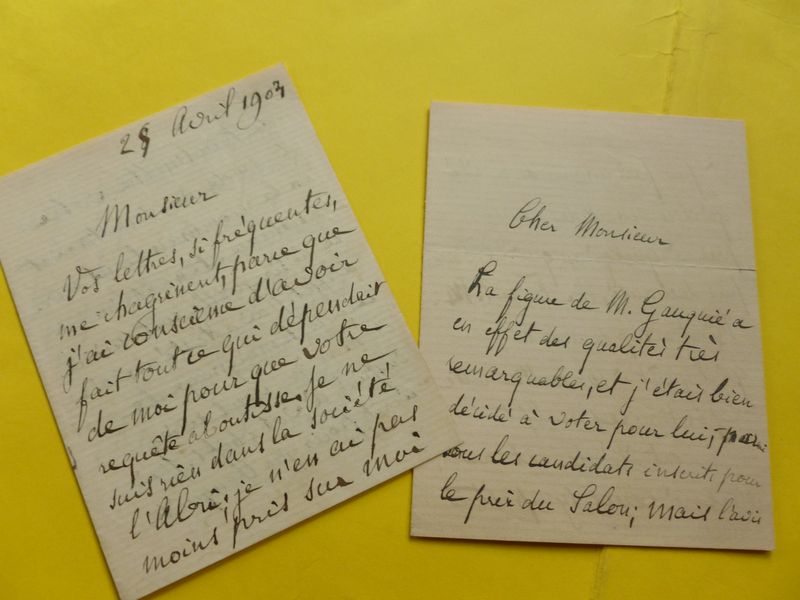 Avril 1903
Monsieur
Vos lettres, si fréquentes,
me chagrinent, parce que
j'ai conscience d'avoir
fait tout ce qui dépendait
de moi pour que votre
requête aboutisse. Je ne
suis rien dans la société
l'Abri, je n'en ai pas
moins pris sur moi
Cher Monsieur
La figure de M. Gauquié a
en effet des qualités très
remarquables, et j'étais bien
décidé à voter pour lui, parmi
tous les candidats inscrits pour
le prix du Salon; mais l'avis